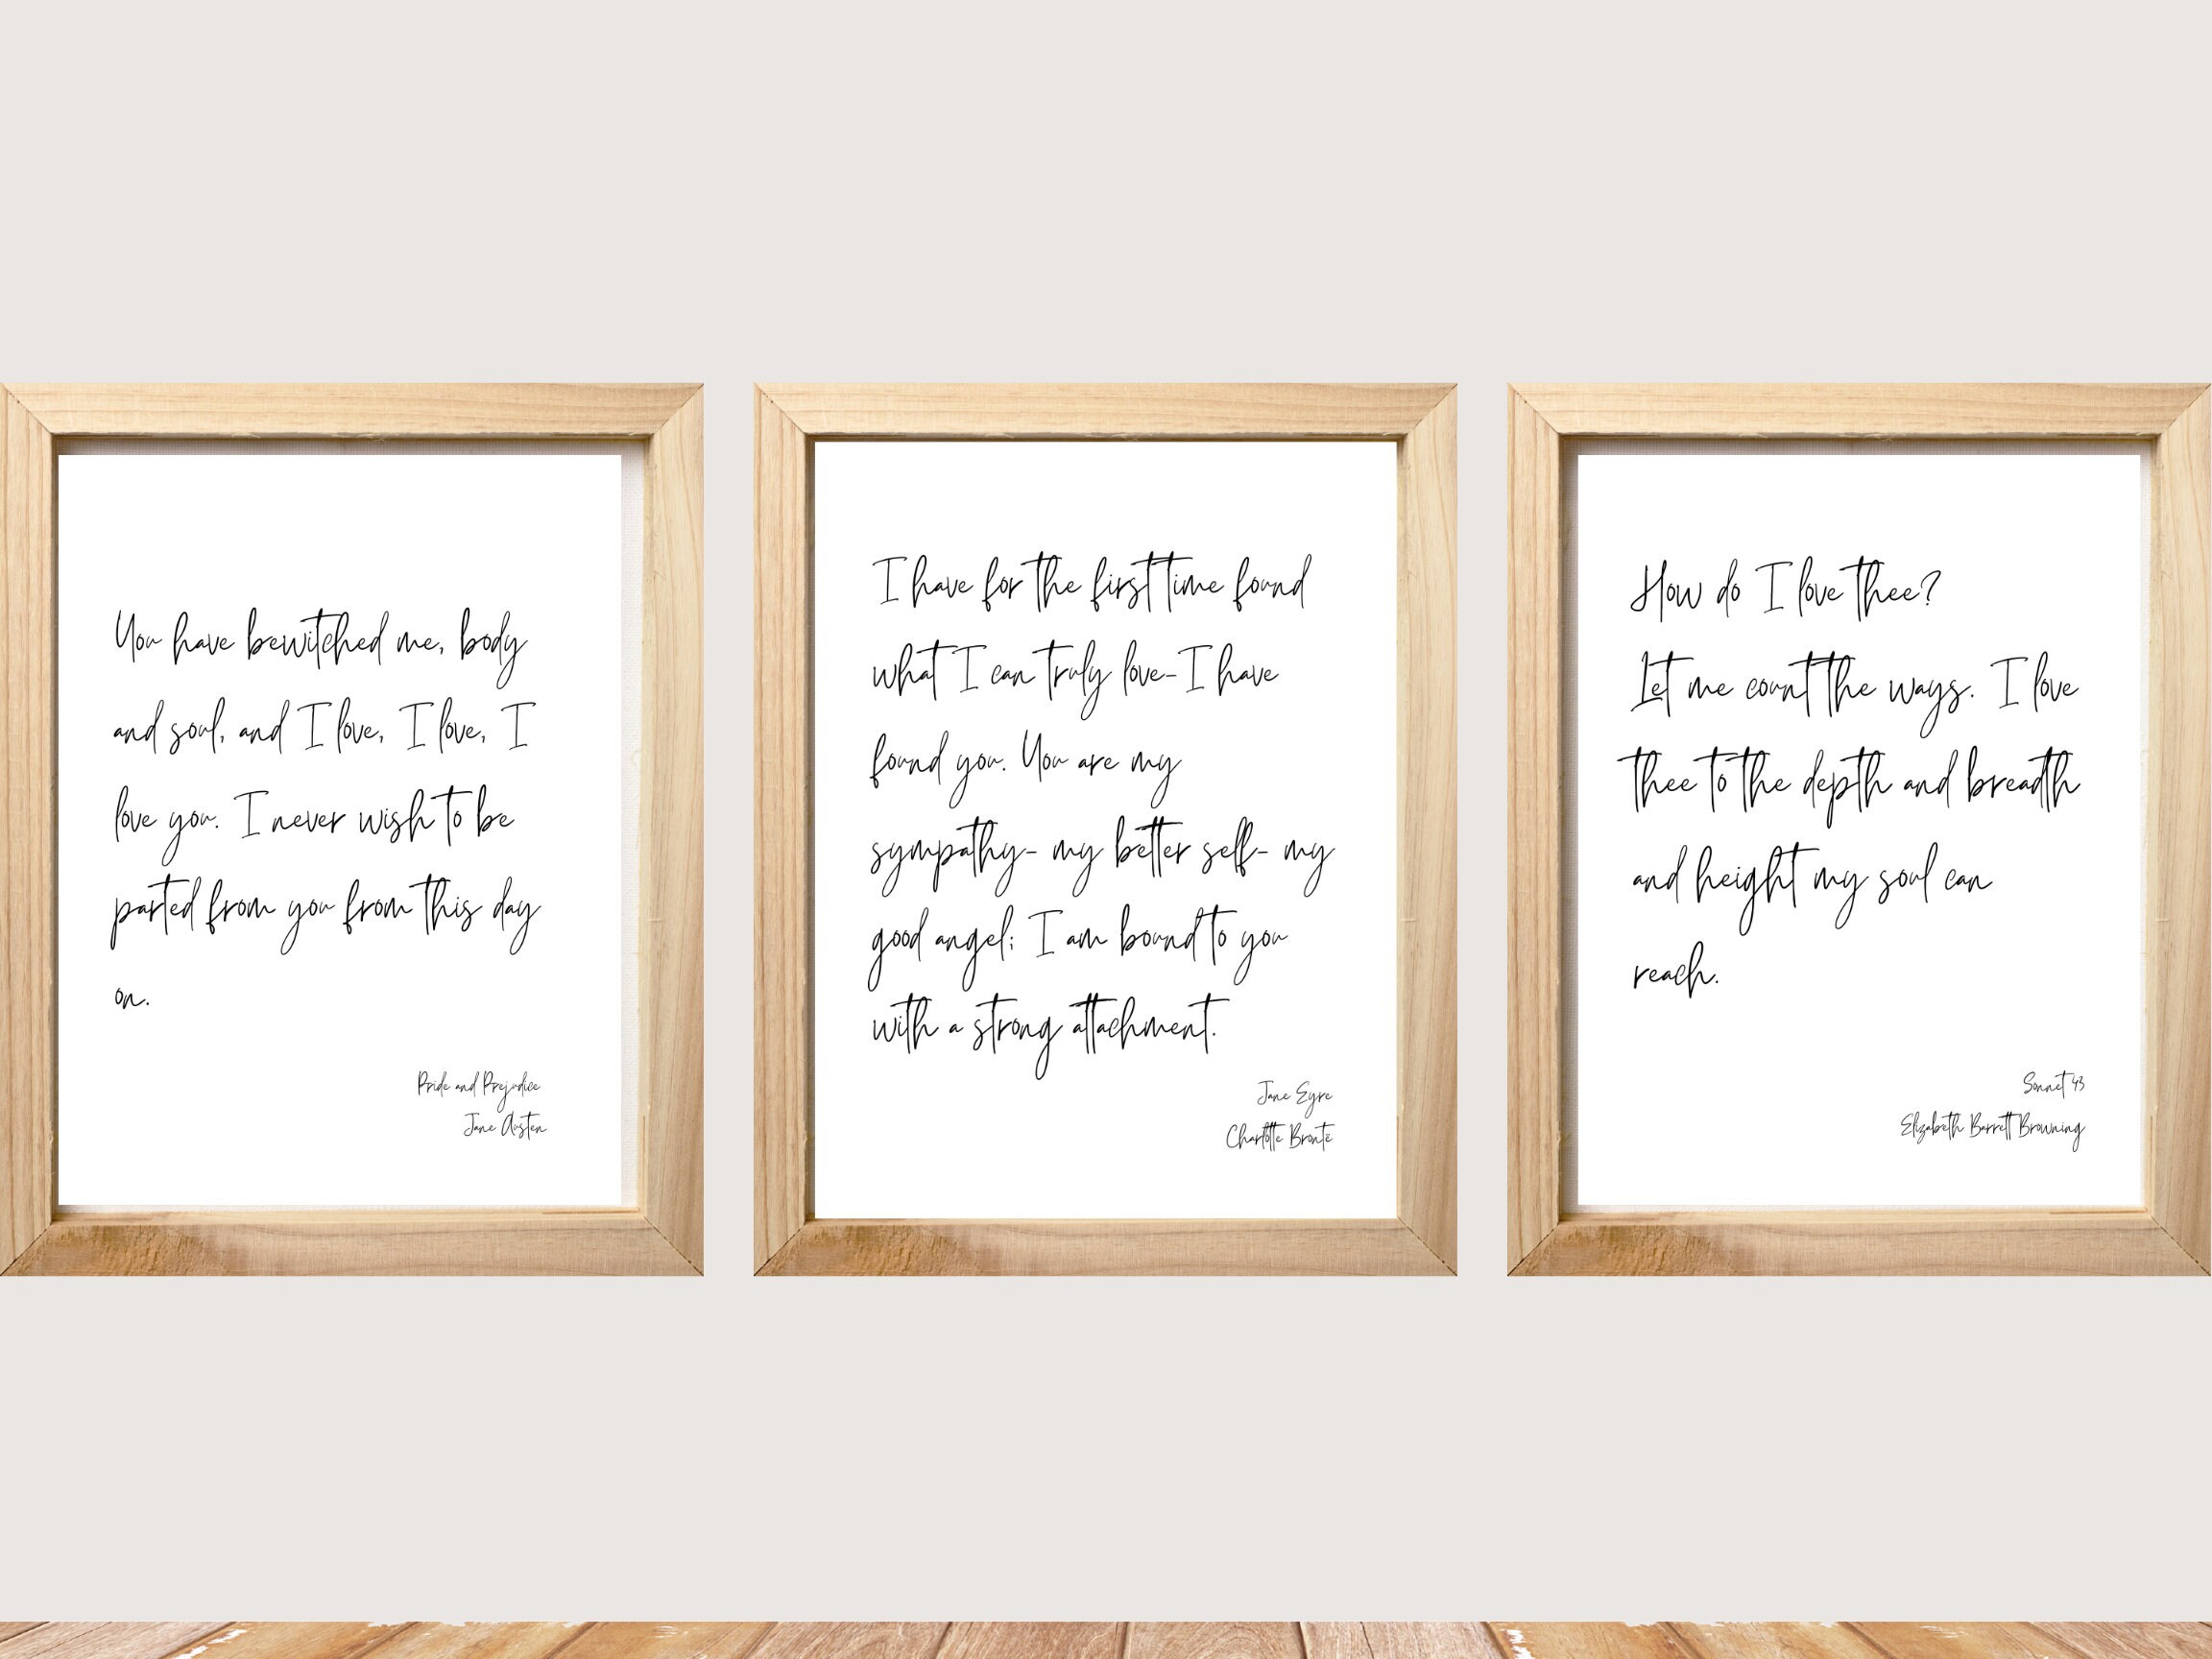 You have bewitched me, body
and soul, and I love, I love, I
love you. I never wish to be
parted from you from this day
on.
Pride and Prejudice
Jane Austen
I have for the first time found
what I can truly love-I have
found you. You are my
sympathy- my better self- my
good angel; I am bound to you
with a strong attachment.
Jane Eyre
Charlotte Brontë
How do I love thee?
Let me count the ways. I love
thee to the depth and breadth
and height my soul can
reach.
Sonnet 43
Elizabeth Barrett Browning